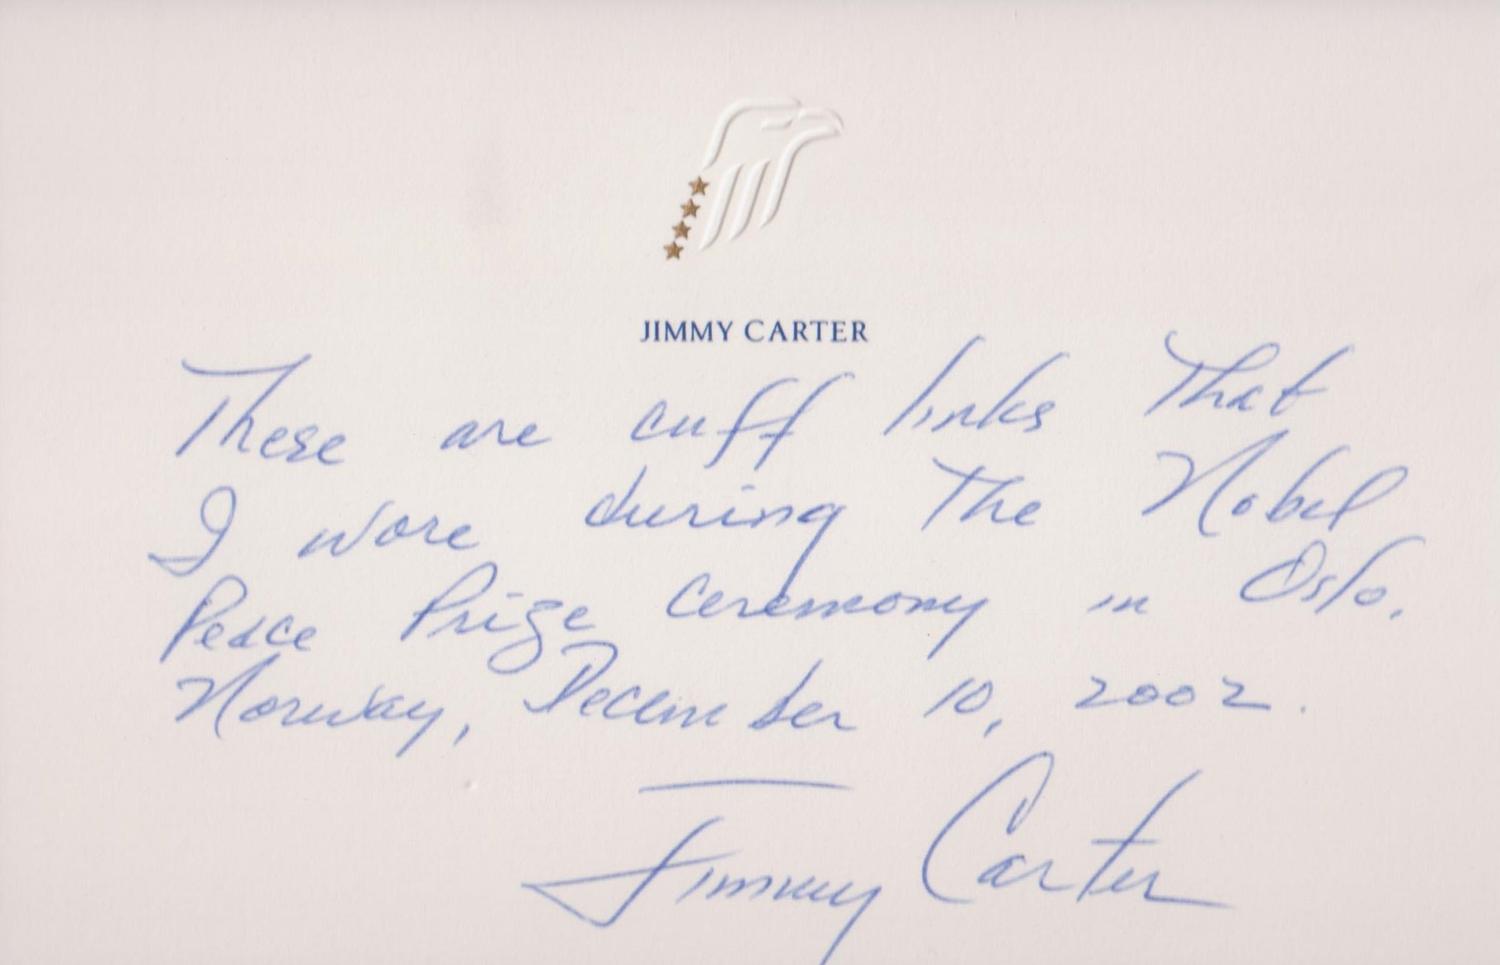 JIMMY CARTER
These are cuff links that
I wore during the Nobel
Peace Prize ceremony in Oslo.
Norway, December 10, 2002.
Jimmy Carter